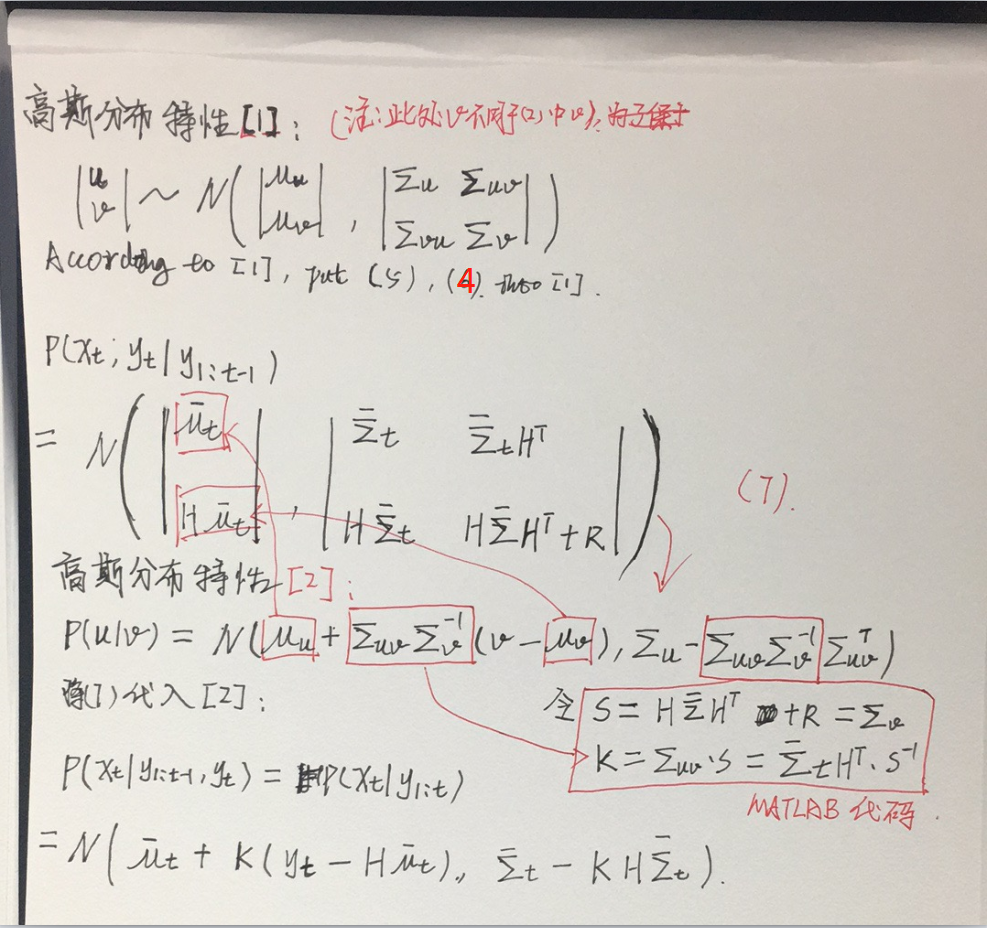 高斯分布特性[1]: (注:此处v不同于(2)中v),
|u v| ~ N( |μu μv| , |Σu Σuv Σvu Σv| )
According to [1], put (5), (4) into [1].
P(xt, yt | y1:t-1)
= N( |μ̄t Hμ̄t| , |Σ̄t Σ̄tHᵀ HΣ̄t HΣ̄Hᵀ+R| ) (7).
高斯分布特性[2]:
P(u|v) = N(μu + ΣuvΣv⁻¹(v - μv), Σu - ΣuvΣv⁻¹Σuvᵀ)
代入[2]:
令 S = HΣ̄Hᵀ +R = Σv
K = Σuv·S = Σ̄tHᵀ·S⁻¹
MATLAB 代码.
P(xt|y1:t-1, yt) = P(xt|y1:t)
= N( μ̄t + K(yt - Hμ̄t), Σ̄t - KHΣ̄t).